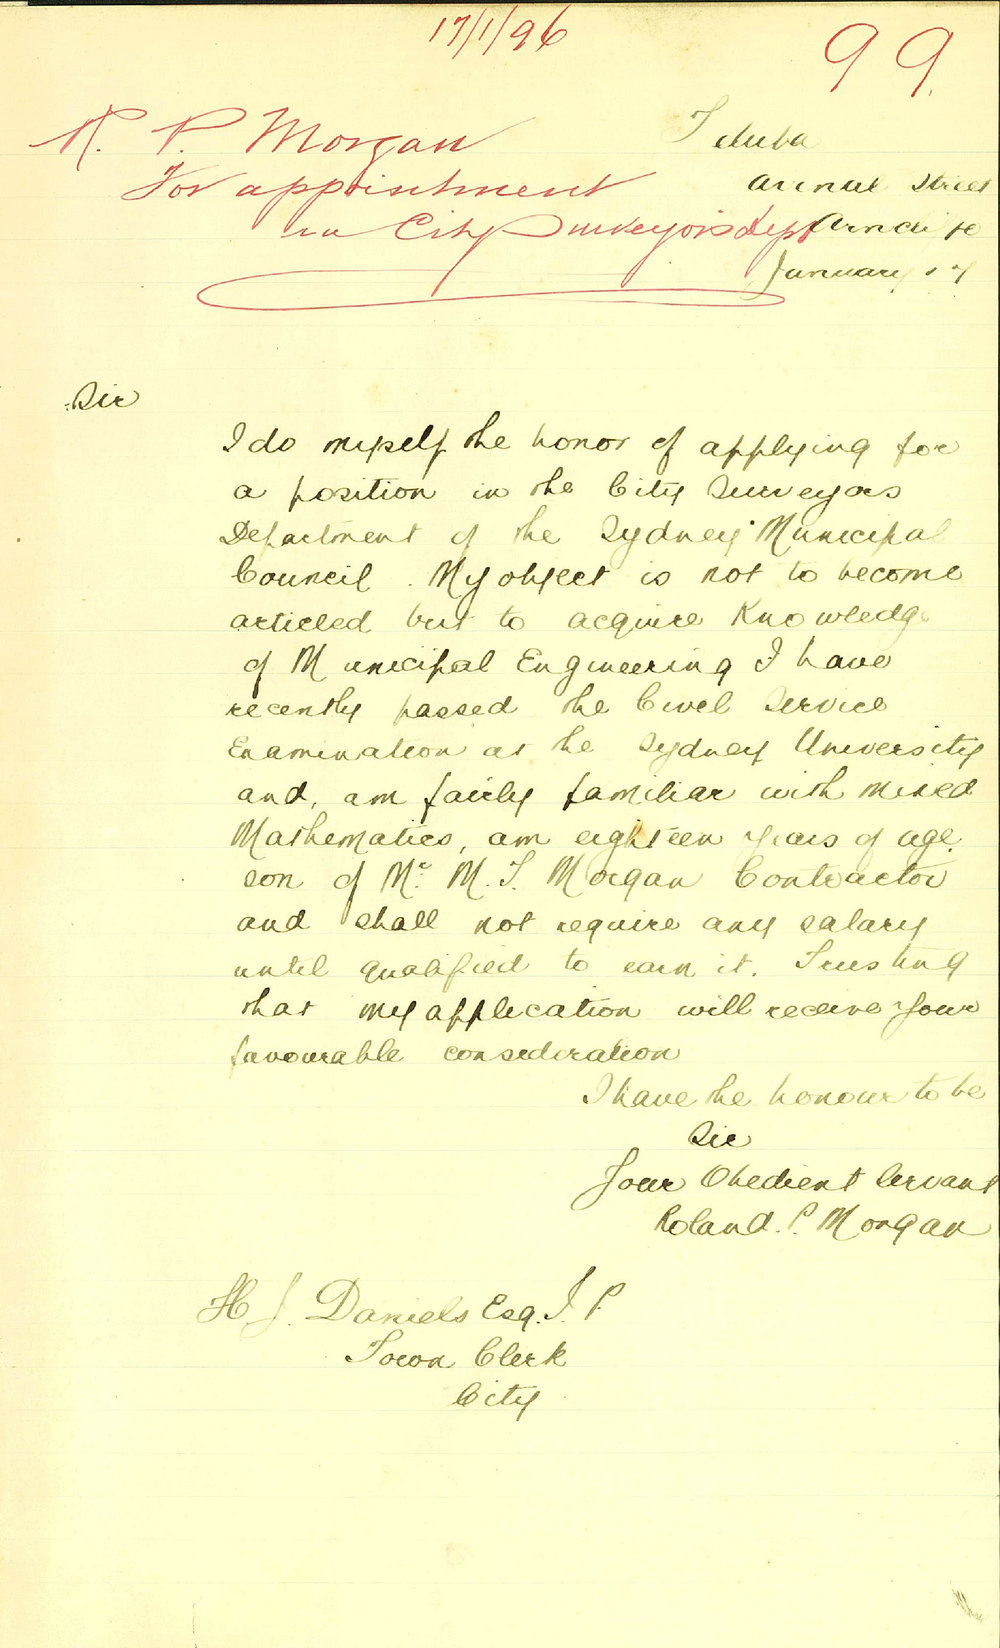 17/1/96
99.
R. P. Morgan
For appointment
in City Surveyor's Dept
Street
January 17
Sir
I do myself the honor of applying for
a position in the City Surveyors
Department of the Sydney Municipal
Council. My object is not to become
articled but to acquire Knowledge
of Municipal Engineering I have
recently passed the Civil Service
Examination at the Sydney University
and, am fairly familiar with mixed
Mathematics, am eighteen years of age,
son of Mr. M. T. Morgan Contractor
and shall not require any salary
until qualified to earn it. Trusting
that my application will receive your
favourable consideration
I have the honour to be
Sir
Your Obedient Servant
Roland. P. Morgan
H J. Daniels Esq. J. P.
Town Clerk
City